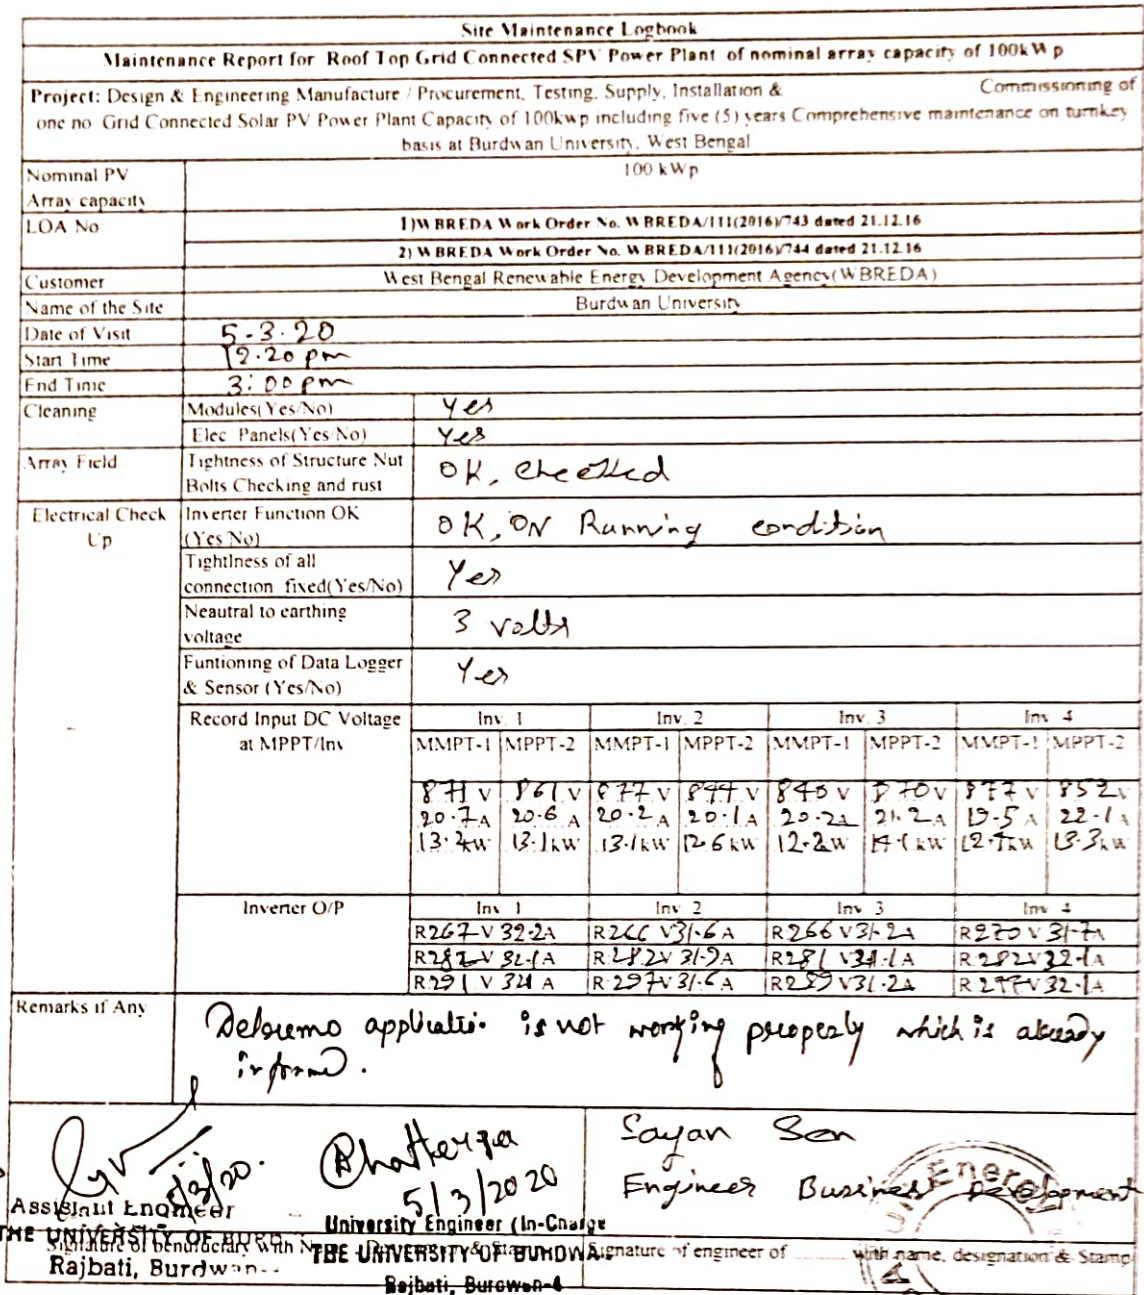 Site Maintenance Logbook
Maintenance Report for Roof Top Grid Connected SPV Power Plant of nominal array capacity of 100kWp
Project: Design & Engineering Manufacture / Procurement, Testing, Supply, Installation & Commissioning of
one no Grid Connected Solar PV Power Plant Capacity of 100kwp including five (5) years Comprehensive maintenance on turnkey
basis at Burdwan University, West Bengal
Nominal PV Array capacity 100 kWp
LOA No 1)WBREDA Work Order No. WBREDA/111(2016)/743 dated 21.12.16
2) WBREDA Work Order No. WBREDA/111(2016)/744 dated 21.12.16
Customer West Bengal Renewable Energy Development Agency(WBREDA)
Name of the Site Burdwan University
Date of Visit 5-3-20
Start Time 12.20 pm
End Time 3:00 pm
Cleaning Modules(Yes/No) Yes
Elec Panels(Yes/No) Yes
Array Field Tightness of Structure Nut Bolts Checking and rust OK, checked
Electrical Check Up Inverter Function OK (Yes No) OK, ON Running condition
Tightlness of all connection fixed(Yes/No) Yes
Neautral to earthing voltage 3 volts
Funtioning of Data Logger & Sensor (Yes/No) Yes
Record Input DC Voltage at MPPT/Inv Inv. 1 Inv. 2 Inv. 3 Inv. 4
MMPT-1 MPPT-2 MMPT-1 MPPT-2 MMPT-1 MPPT-2 MMPT-1 MPPT-2
871 V 861 V 877 V 844 V 840 V 870 V 877 V 852 V
20.7 A 20.6 A 20.2 A 20.1 A 20.2 A 21.2 A 19.5 A 22.1 A
kW 13.1 kW 13.1 kW 12.6 kW 12.2 W 14.1 kW kW 13.3 kW
Inverter O/P Inv 1 Inv 2 Inv 3 Inv 4
R 267 V 32.2 A R 266 V 31.6 A R 266 V 31.2 A R 270 V 31.7 A
R 282 V 32.1 A R 282 V 31.9 A R 281 V A R 282 V 32.1 A
R 291 V A R 297 V 31.6 A R 289 V 31.2 A R V 32.1 A
Remarks if Any is not working properly which is already
informed.
5/3/20.
5/3/2020
Sayan Sen
Engineer Business Development
Assistant Engineer
THE UNIVERSITY OF
Rajbati, Burdwan
University Engineer (In-Charge
THE UNIVERSITY OF BURDWA
Rajbati, Burdwan-4
Signature of benificiary with
Signature of engineer of ......... with name, designation & Stamp
Energy